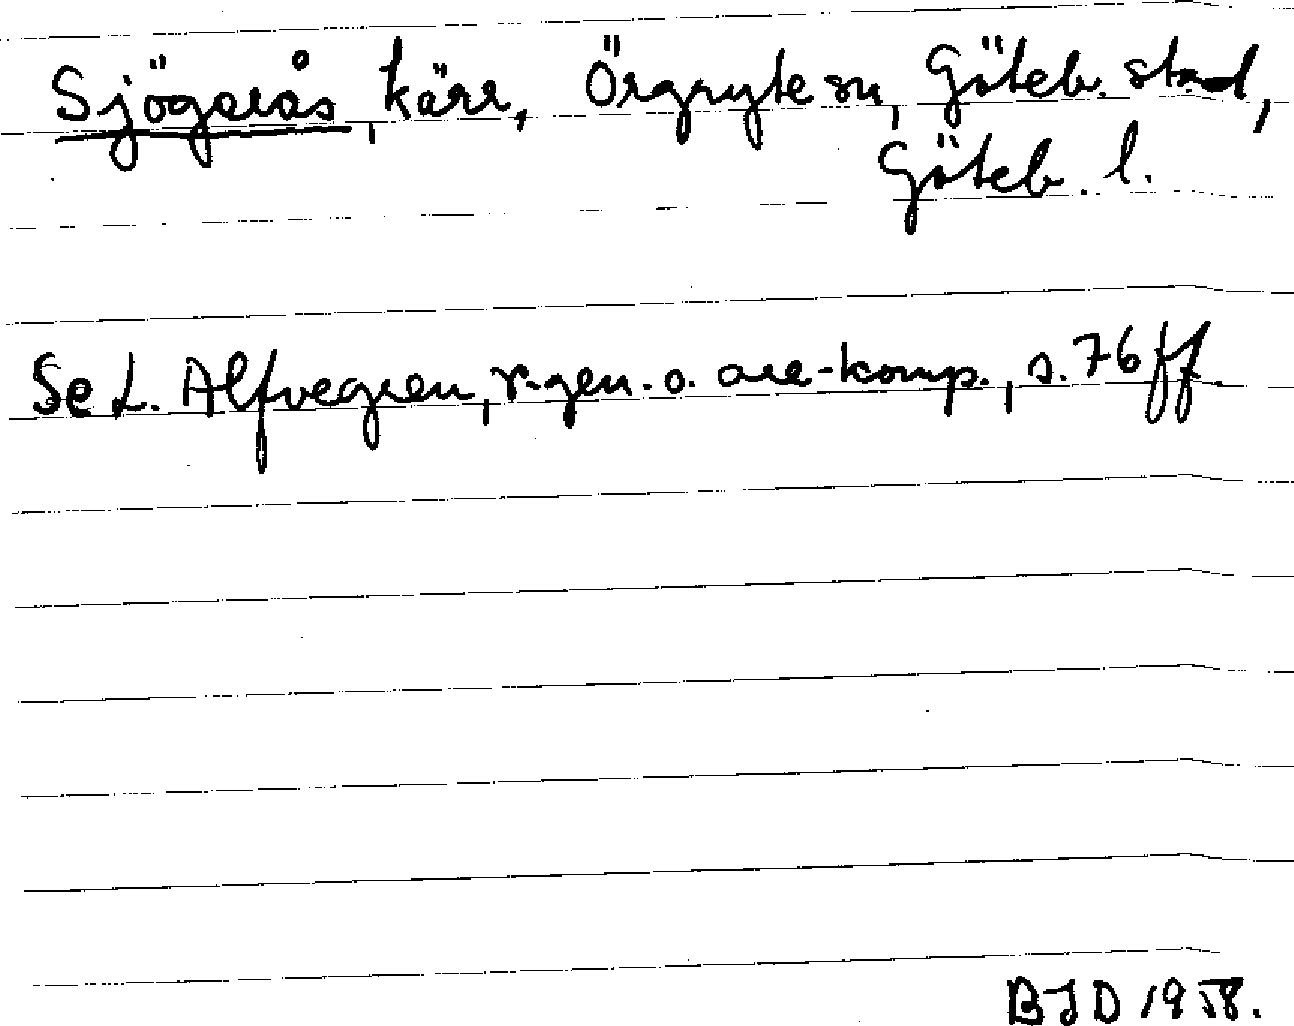 Sjögarås, kärr, Örgryte sn, Göteb. stad,
Göteb. l.
Se L. Alfvegren, r-gen. o. are-komp., s. 76 ff
BJD 1958.